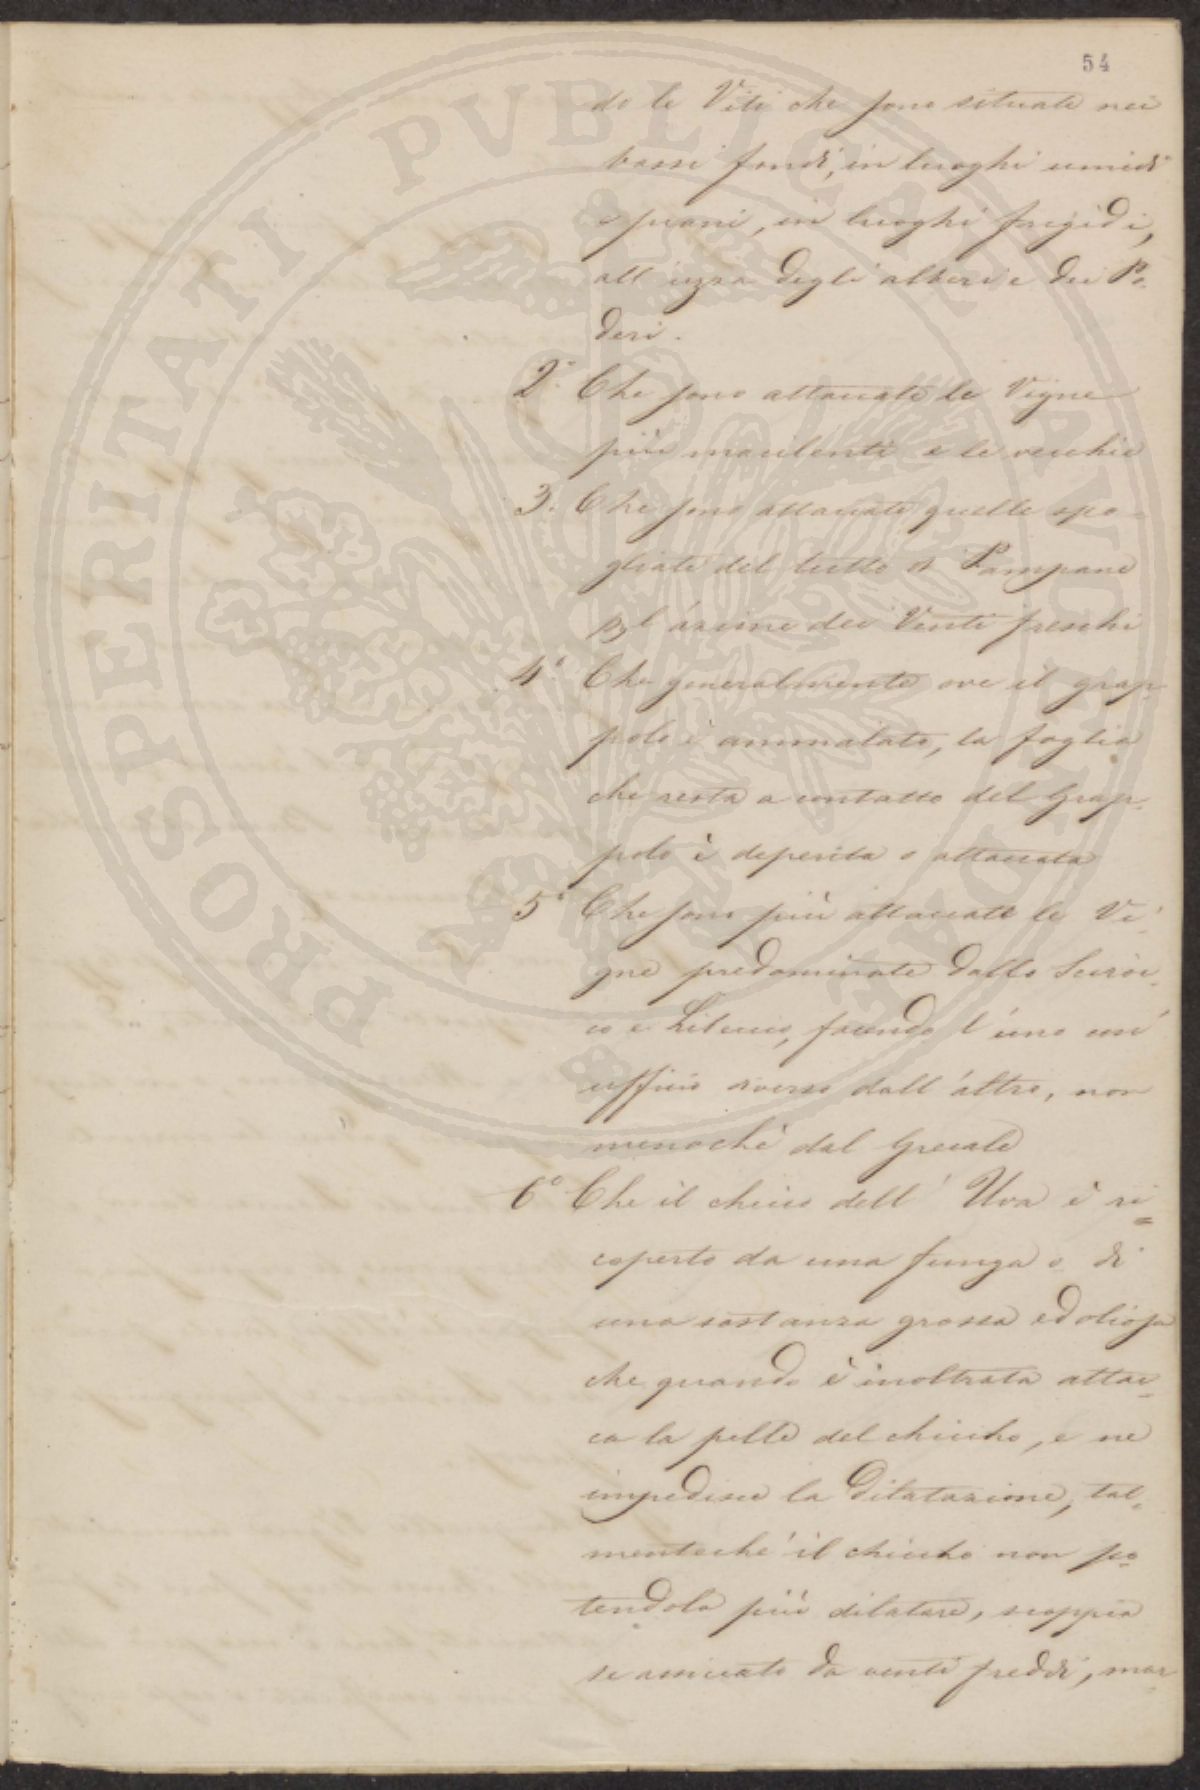 54
do le Viti che sono situate nei
bassi fondi, in luoghi umidi
e piani, in luoghi frigidi,
all'uzza degli alberi e dei Po-
deri.
2° Che sono attaccate le Vigne
più macilenti e le vecchie
3. Che sono attaccate quelle spo-
gliate del tutto di Pampane
l'azione dei Venti freschi
4° Che generalmente ove il grap-
polo è ammalato, la foglia
che resta a contatto del Grap-
polo è deperita o attaccata
5° Che sono più attaccate le Vi-
gne predominate dallo Sciroc-
co e Libeccio, facendo l'uno un
ufficio diverso dall'altro, non
menochè dal Grecale
6° Che il chicco dell'Uva è ri-
coperto da una funga o di
una sostanza grossa ed oliosa
che quando è inoltrata attac-
ca la pelle del chiccho, e ne
impedisce la Dilatazione, tal-
mentechè il chiccho non po-
tendola più dilatare, scoppia
se assiccato da venti freddi, mar-
PROSPERITATI PVBLICAE AVGENDAE